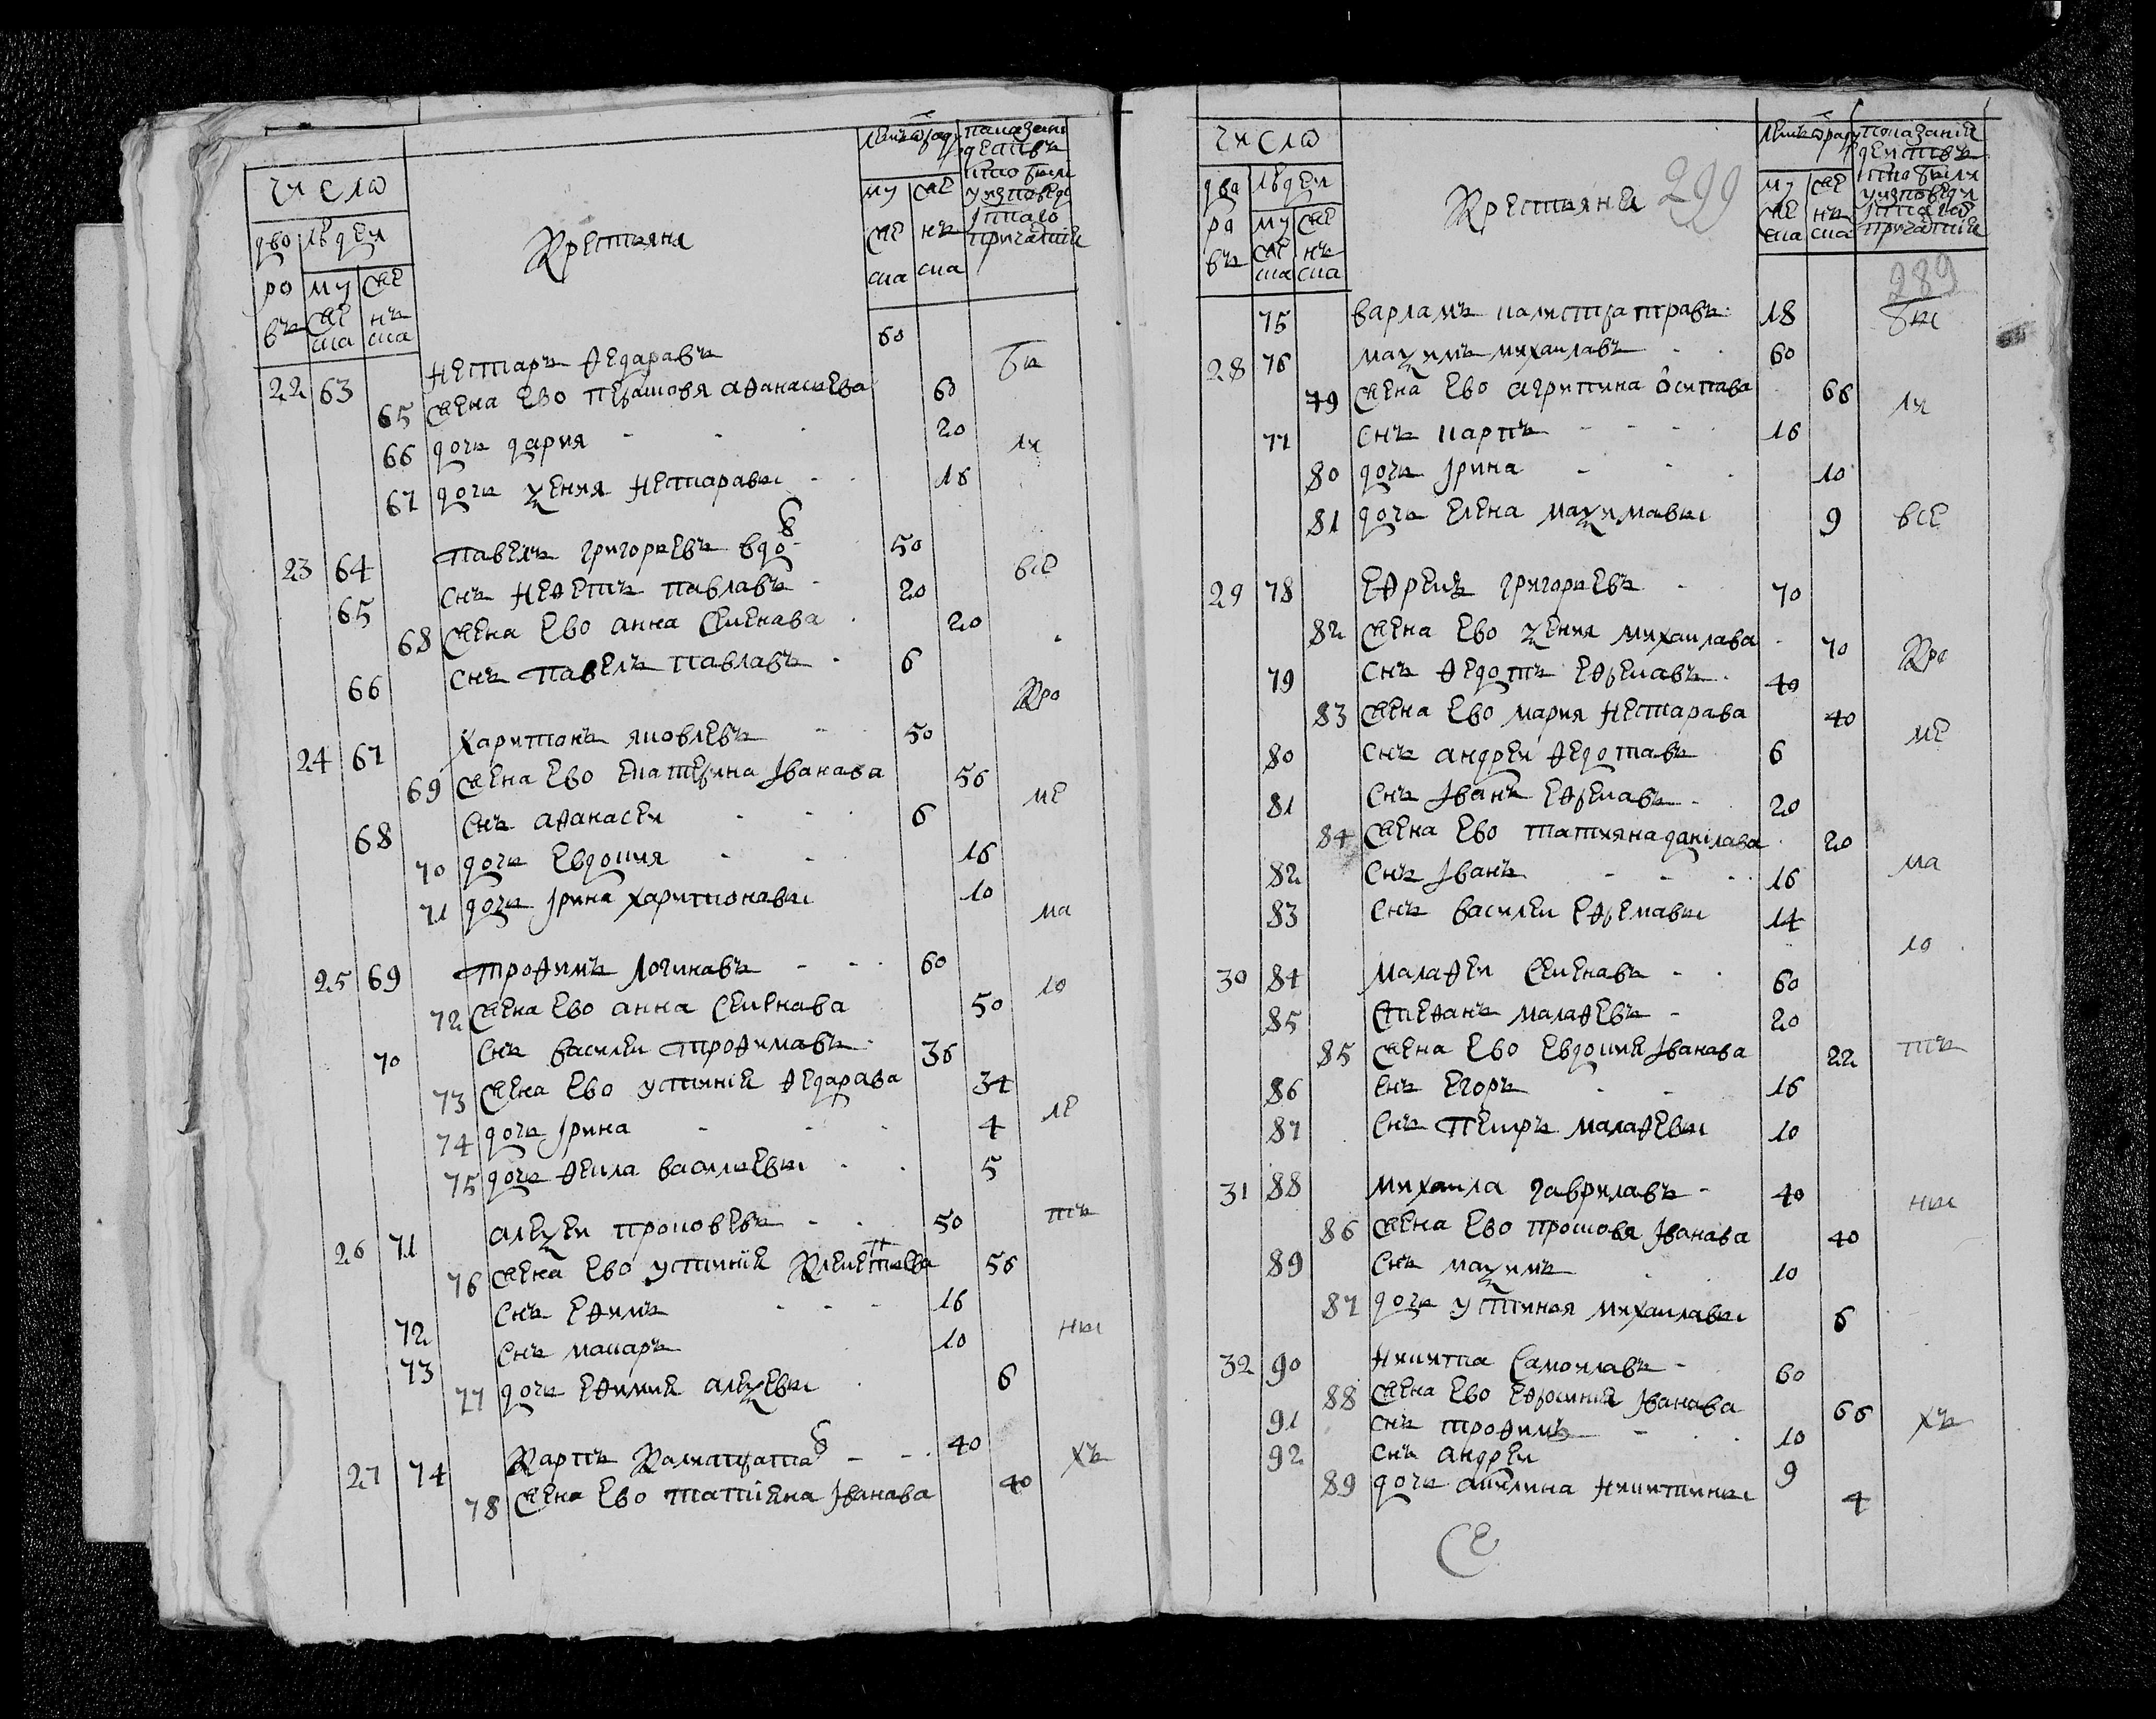 число
дворовъ людеи
мужеска женъска
Крестьяне
летъ от роду
мужеска женъска
показание деиствъ кто были у исповеди и святаго причастия
22 63 нестаръ ѳедаравъ 60 бы
65 жена ево ѳеѳанасьева 60
66 дочь дария 20 ли
67 дочь ѯения нестаравы 16
23 64 павелъ григорьевъ вдов 50
65 снъ неѳетъ павлавъ 20 все
68 жена ево анна семенава 20
66 снъ павелъ павлавъ 6
Кро
24 67 харитонъ яковлевъ 50
69 жена ево екатерина іванава 56
68 снъ аѳанасеи 6 ме
70 дочь евдокия 16
71 дочь ірина харитонавы 10
ма
25 69 троѳимъ логинавъ 60
72 жена ево анна семенава 50 ло
70 снъ василеи троѳимавъ 36
73 жена ево устиния ѳедарава 34
74 дочь ірина 4 ле
75 дочь ѳекла васильевы 5
26 71 алеѯеи прокоѳевъ 50 тъ
76 жена ево устиния Клементьева 56
72 снъ еѳимъ 16
73 снъ макаръ 10 ны
77 дочь еѳимия алеѯевы 6
27 74 Карпъ Калистратов 40 хъ
78 жена ево татияна іванава 40
число
дваровъ людеи
мужеска женъска
Крестьяне 299
летъ от роду
мужеска женъска
показания деиствъ кто были у исповеди и святаго причастия
289
75 варламъ калистратравъ 18 бы
28 76 маѯимъ михаилавъ 60
79 жена ево агрипина осипава 66 ли
77 снъ карпъ 16
80 дочь ірина 10
81 дочь елена маѯимавы 9 все
29 78 еѳремъ григорьевъ 70
82 жена ево ѯения михаилава 70 Кро
79 снъ ѳедотъ еѳремавъ 40
83 жена ево мария нестарава 40
80 снъ андреи ѳедотавъ 6 ме
81 снъ іванъ еѳремавъ 20
84 жена ево татияна данилава 20
82 снъ іванъ 16 ма
83 снъ василеи еѳремавы 14
ло
30 84 малаѳеи семенавъ 60
85 стеѳанъ малаѳевъ 20
85 жена ево евдокия іванава 22 тъ
86 снъ егоръ 16
87 снъ петръ малаѳевы 10
31 88 михаила гаврилавъ 40 ны
86 жена ево прошовя іванава 40
89 снъ маѯимъ 10
87 дочь устиноя михаилавы 6
32 90 никита самоилавъ 60
88 жена ево еѳросиния іванава 66
91 снъ троѳимъ 10 хъ
92 снъ андреи 9
89 дочь акилина никитины 4
се